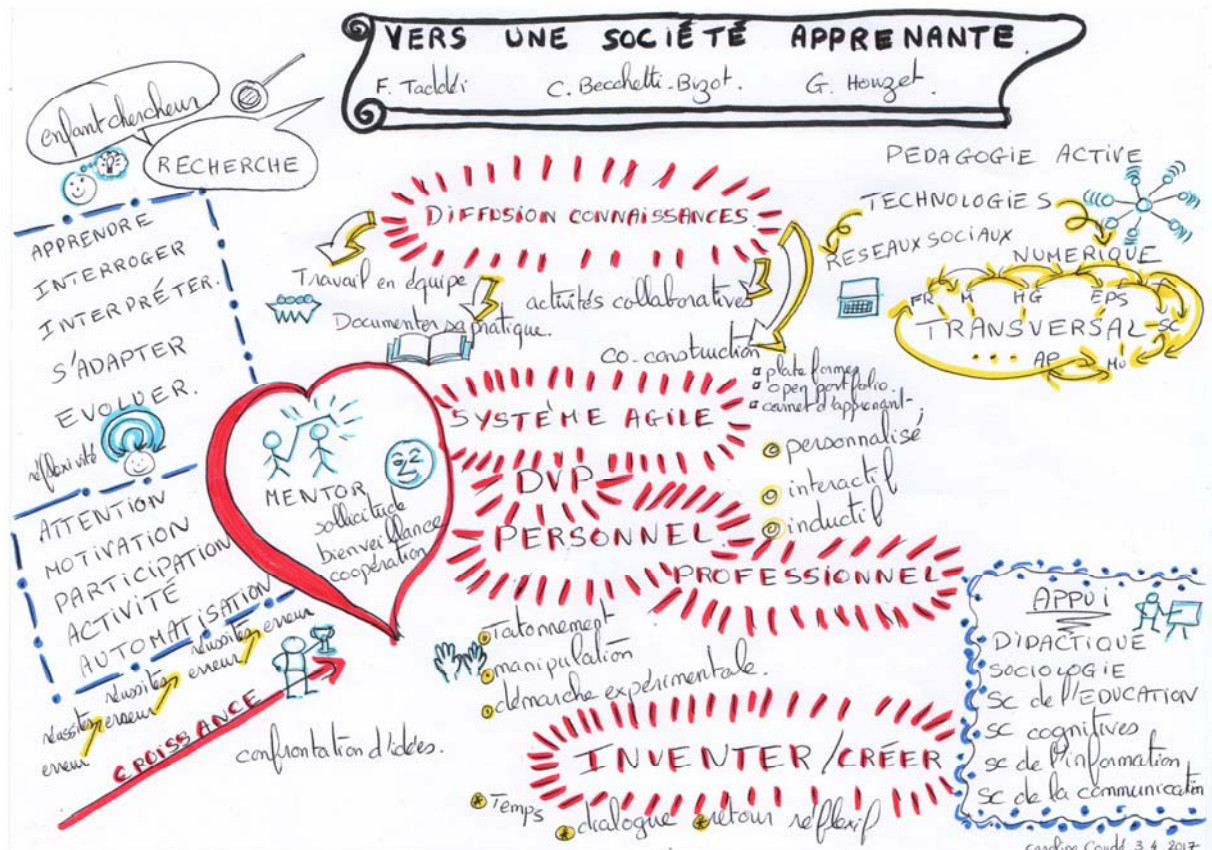 VERS UNE SOCIÉTÉ APPRENANTE
F. Taddéi C. Becchetti-Bizot. G. Houzet.
enfant chercheur
RECHERCHE
APPRENDRE
INTERROGER
INTERPRÉTER.
S'ADAPTER
EVOLUER.
réflexivité
ATTENTION
MOTIVATION
PARTICIPATION
ACTIVITÉ
AUTOMATISATION
erreur réussites erreur réussites erreur réussites erreur
CROISSANCE
MENTOR
sollicitude
bienveillance
coopération
confrontation d'idées.
DIFFUSION CONNAISSANCES.
Travail en équipe
Documenter sa pratique.
activités collaboratives
co-construction
plateformes
open portfolio.
carnet d'apprenant
SYSTÈME AGILE
personnalisé
interactif
inductif
DVP
PERSONNEL.
PROFESSIONNEL
Tatonnement
manipulation
démarche expérimentale.
INVENTER/CRÉER
Temps
dialogue
retour réflexif
PEDAGOGIE ACTIVE
TECHNOLOGIES
RESEAUX SOCIAUX
NUMERIQUE
FR M HG EPS
TRANSVERSAL SC
... AP MU
APPUI
DIDACTIQUE
SOCIOLOGIE
SC de l'EDUCATION
SC cognitives
sc de l'information
sc de la communication
Caroline Coudé 3.4.2017